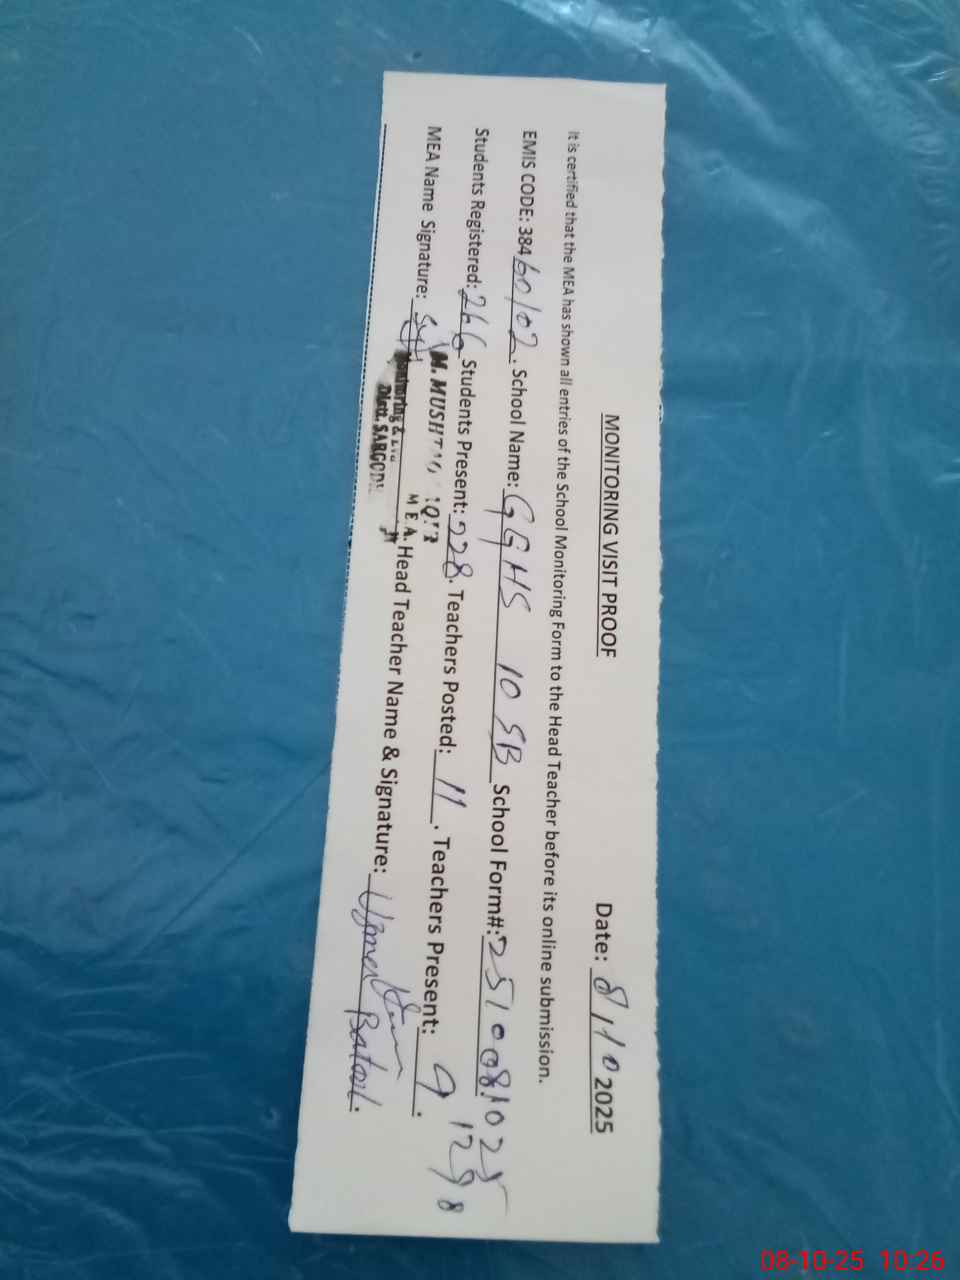 MONITORING VISIT PROOF
Date: 8/10 2025
It is certified that the MEA has shown all entries of the School Monitoring Form to the Head Teacher before its online submission.
EMIS CODE: 38460102. School Name: GGHS 10 SB School Form#: 2510081025
1298
Students Registered: 266 Students Present: 228. Teachers Posted: 11. Teachers Present: 9.
MEA Name Signature: Head Teacher Name & Signature: Batool.
M.
M.E.A.
Monitoring &
Distt. SARGODHA
08-10-25 10:26